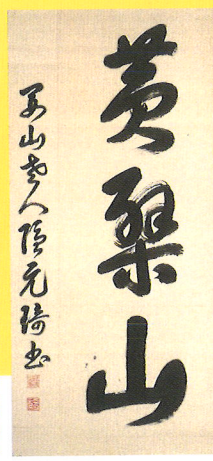 黄檗山
開山老人隠元琦書